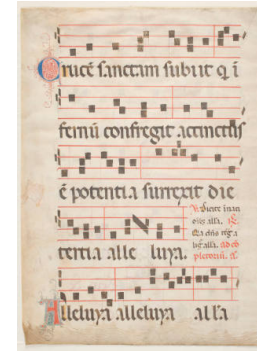 Crucem sanctam subiit q i
fernū confregit accinctus
ē potentia surrexit die
tertia alle luya.
Alleluya alleluya alla